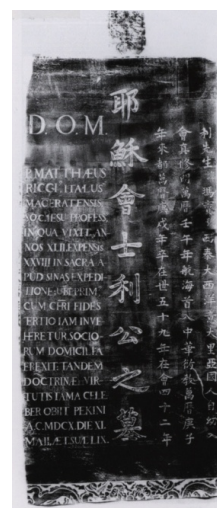 D. O. M.
P. MATTHÆUS
RICCI, ITALUS
MACERATENSIS
SOC. IESU PROFESS.
IN QUA VIXIT AN-
NOS XLII. EXPENSIS
XXVIII IN SACRA A-
PUD SINAS EXPEDI-
TIONE; UBI PRIM.
CUM CHRI FIDES
TERTIO IAM INVE-
HERETUR SOCIO-
RUM DOMICILIA
EREXIT. TANDEM
DOCTRINÆ ET VIR-
TUTIS FAMA CELE-
BER OBIIT PEKINI
A. C. MDCX. DIE XI.
MAII. ÆT. SUÆ LIX.
耶穌會士利公之墓
利先生 瑪竇 西泰大西 里亞 人自幼入
會真修 萬曆壬午年航海首入中華 教萬曆庚子
年來 萬曆 戌年卒在世五十九年在會四十二年